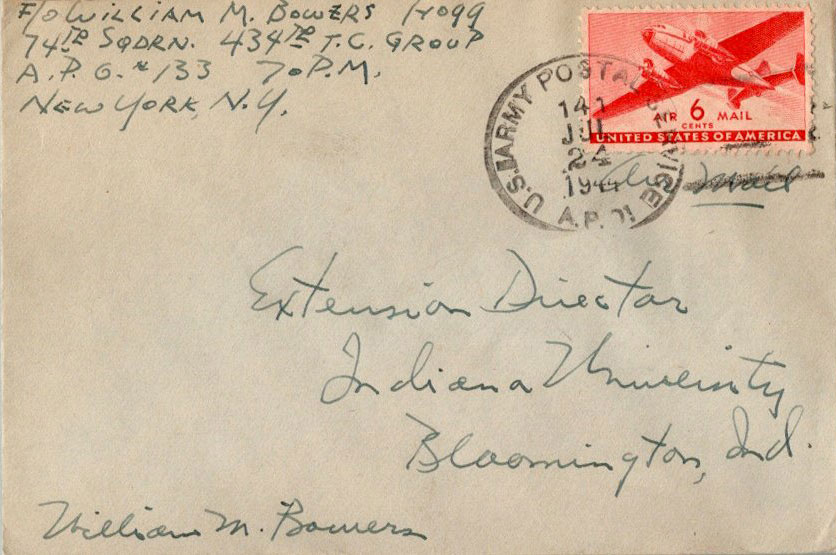 F/O WILLIAM M. BOWERS
74TH SQDRN. 434TH T.C. GROUP
A.P.O. # 133 % P.M.
NEW YORK, N.Y.
U.S. ARMY POSTAL SERVICE
141
JUL
24
1944
A.P.O.
AIR 6 MAIL
CENTS
UNITED STATES OF AMERICA
Air Mail
Extension Director
Indiana University
Bloomington, Ind.
William M. Bowers